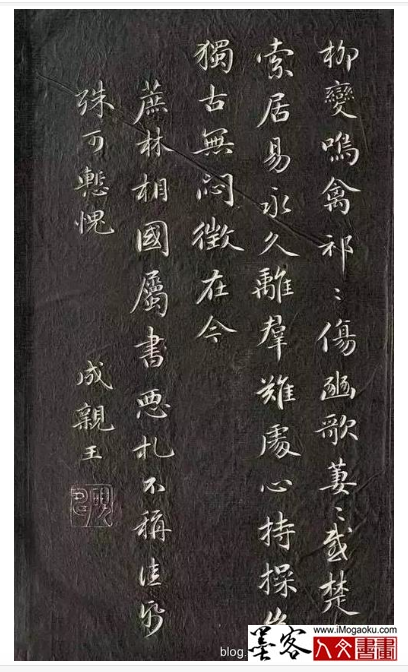 柳變鳴禽祁〻傷豳歌萋〻感楚
索居易永久離羣難處心持操
獨古無悶徵在今
蔗林相國屬書惡札不稱佳紙
殊可慙愧 成親王
blog.
www.iMogaoku.com
墨客
人文書畫